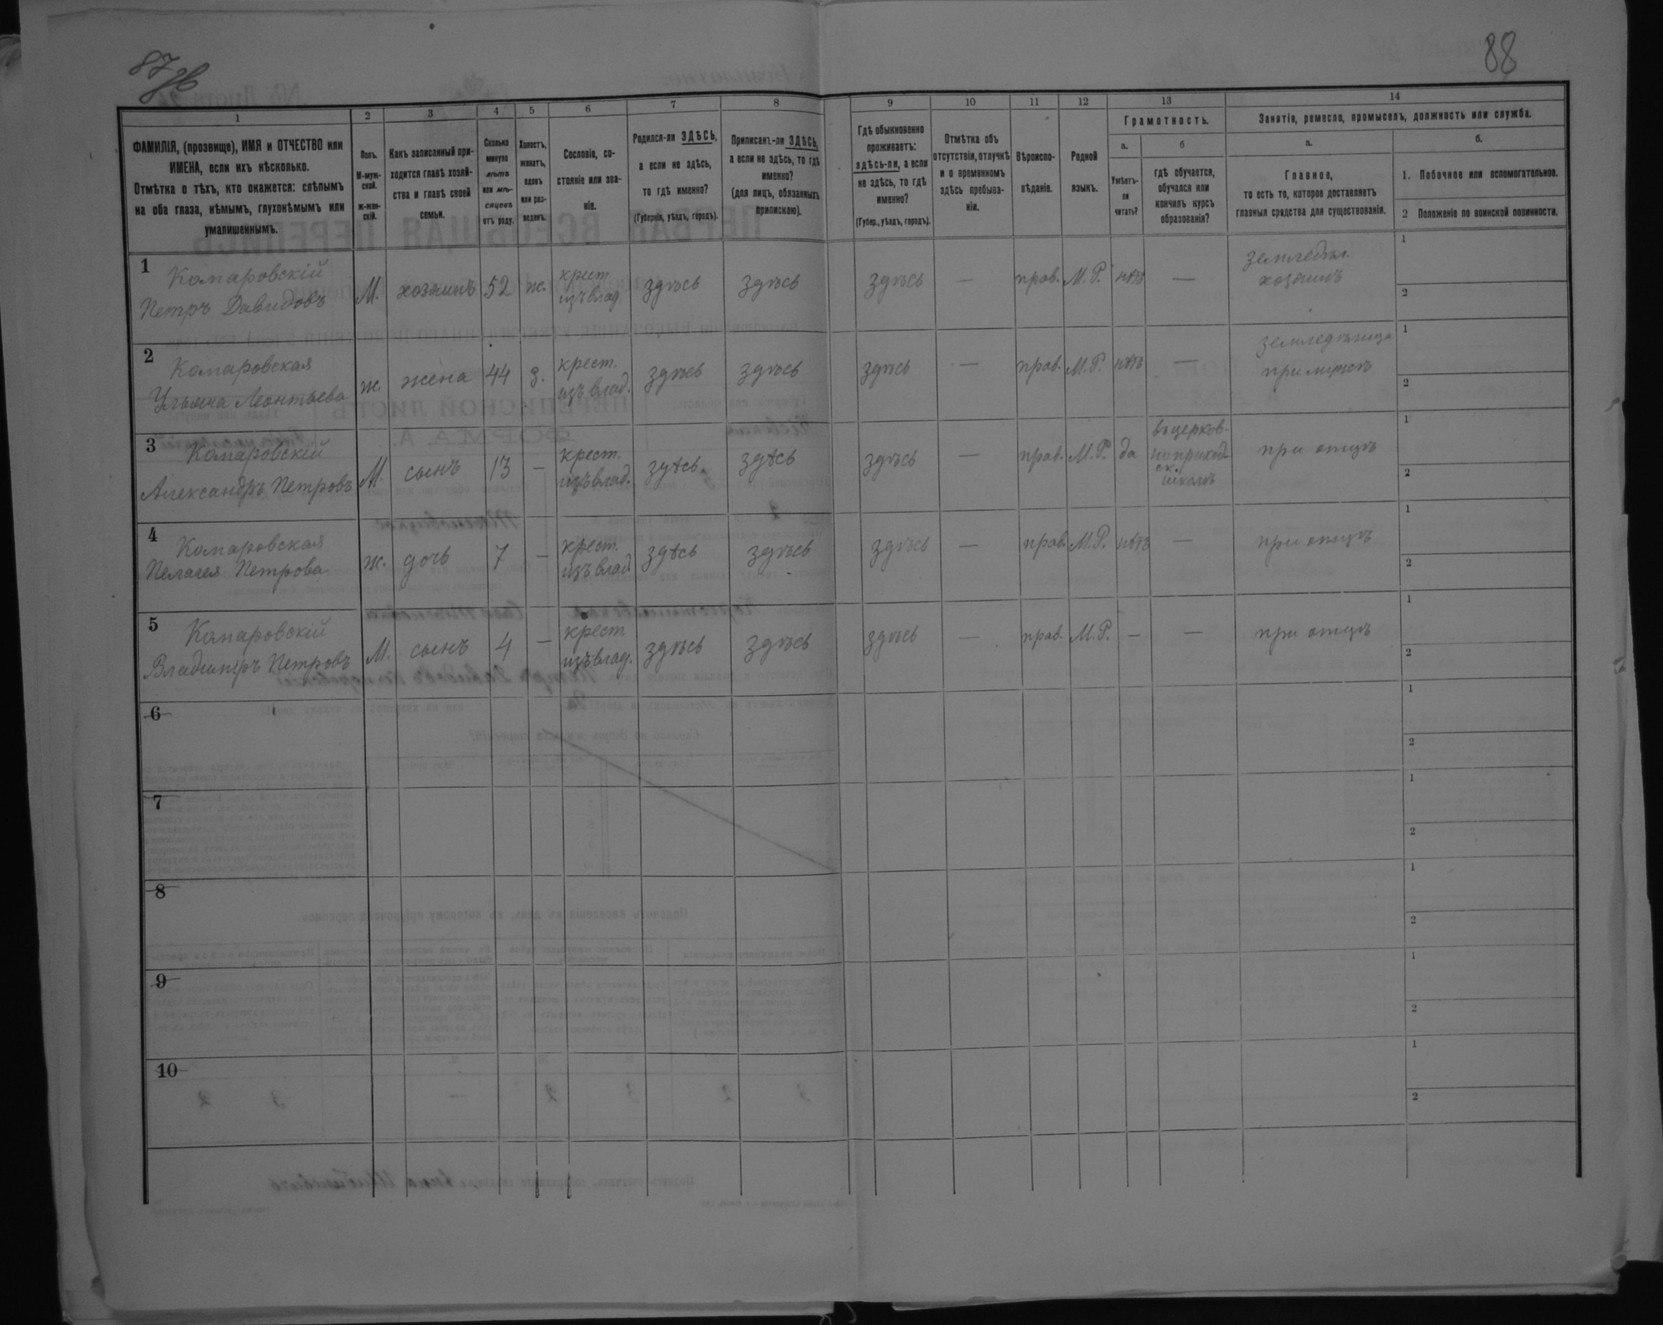 87 об
88
1 2 3 4 5 6 7 8 9 10 11 12 13 14
ФАМИЛІЯ, (прозвище), ИМЯ и ОТЧЕСТВО или
ИМЕНА, если ихъ нѣсколько.
Отмѣтка о тѣхъ, кто окажется: слѣпымъ
на оба глаза, нѣмымъ, глухонѣмымъ или
умалишеннымъ.
Полъ.
М-муж-
ской.
ж-жен-
скій.
Какъ записанный при-
ходится главѣ хозяй-
ства и главѣ своей
семьи.
Сколько
минуло
лѣтъ
или мѣ-
сяцевъ
отъ роду.
Холостъ,
женатъ,
вдовъ
или раз-
веденъ.
Сословіе, со-
стояніе или зва-
ніе.
Родился-ли ЗДѢСЬ,
а если не здѣсь,
то гдѣ именно?
(Губернія, уѣздъ, городъ).
Приписанъ-ли ЗДѢСЬ,
а если не здѣсь, то гдѣ
именно?
(для лицъ, обязанныхъ
припискою).
Гдѣ обыкновенно
проживаетъ:
здѣсь-ли, а если
не здѣсь, то гдѣ
именно?
(Губер., уѣздъ, городъ).
Отмѣтка объ
отсутствіи, отлучкѣ
и о временномъ
здѣсь пребыва-
ніи.
Вѣроиспо-
вѣданіе.
Родной
языкъ.
Грамотность.
а.
Умѣетъ-
ли
читать?
б
гдѣ обучается,
обучался или
кончилъ курсъ
образованія?
Занятія, ремесло, промыселъ, должность или служба.
а.
Главное,
то есть то, которое доставляетъ
главныя средства для существованія.
б.
1. Побочное или вспомогательное.
2 Положеніе по воинской повинности.
1 Комаровскій
Петръ Давидовъ М. хозяинъ 52 ж. крест. изъ влад. здѣсь здѣсь здѣсь — прав. М.Р. нѣтъ — земледѣл. хозяинъ 1 2
2 Комаровская
Ульяна Леонтьева ж. жена 44 з. крест. изъ влад. здѣсь здѣсь здѣсь — прав. М.Р. нѣтъ — при мужѣ 1 2
3 Комаровскій
Александръ Петровъ М. сынъ 13 — крест. изъ влад. здѣсь здѣсь здѣсь — прав. М.Р. да въ церков- но приход- ск. школѣ при отцѣ 1 2
4 Комаровская
Пелагея Петрова ж. дочь 7 — крест. изъ влад здѣсь здѣсь здѣсь — прав. М.Р. нѣтъ — при отцѣ 1 2
5 Комаровскій
Владимеръ Петровъ М. сынъ 4 — крест изъ влад. здѣсь здѣсь здѣсь — прав. М.Р. — — при отцѣ 1 2
6 1 2
7 1 2
8 1 2
9 1 2
10 1 2